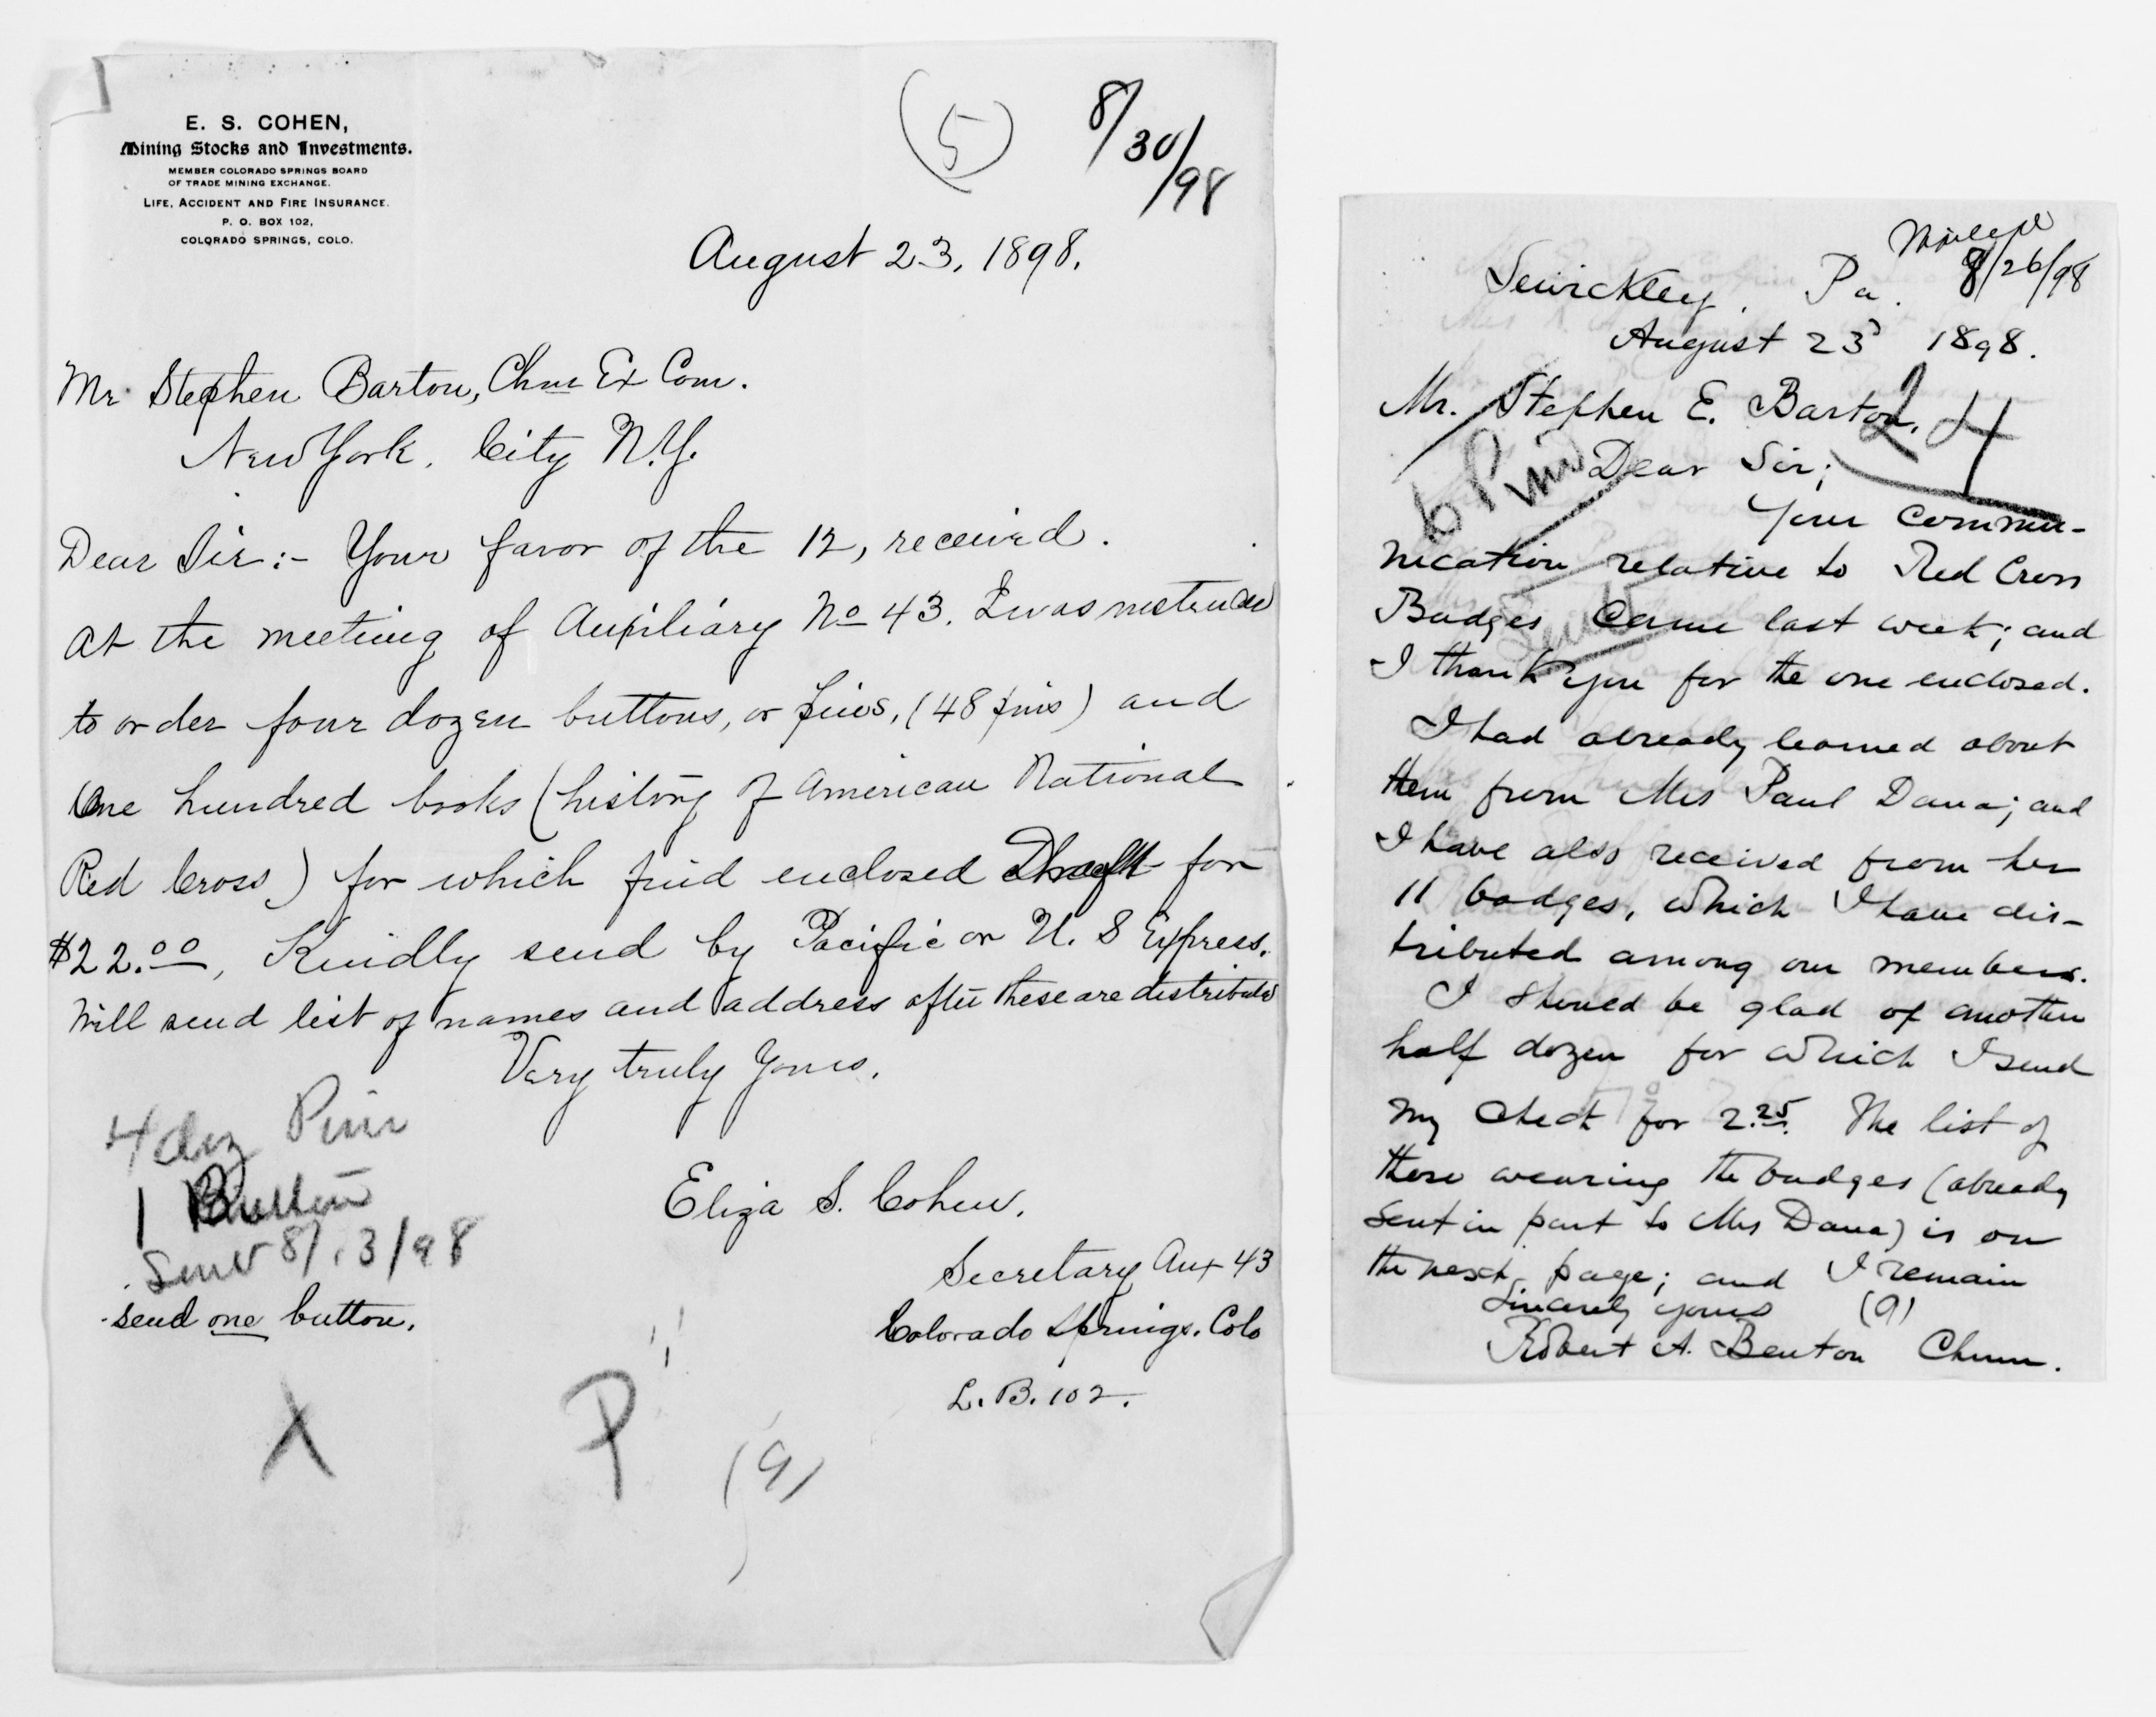 E. S. COHEN,
Mining Stocks and Investments.
MEMBER COLORADO SPRINGS BOARD
OF TRADE MINING EXCHANGE.
LIFE, ACCIDENT AND FIRE INSURANCE.
P. O. BOX 102,
COLORADO SPRINGS, COLO.
(5)
8/30/98
August 23, 1898.
Mr. Stephen Barton, Chm Ex Com.
New York. City N.Y.
Dear Sir:- Your favor of the 12, received.
At the meeting of Auxiliary No 43. I was
to order four dozen buttons, or pins, (48 pins) and
One hundred books (history of American National
Red Cross) for which find enclosed Draft for
$22.00, Kindly send by Pacific or U. S Express.
Will send list of names and address after these are distributed
Very truly Yours,
4 doz Pins
1 Button
Sent 8/13/98
send one button.
Eliza S. Cohen,
Secretary Aux 43
Colorado Springs. Colo
L. B. 102.
X P
(9)
Mailed
8/26/98
Sewickley, Pa.
August 23d 1898.
Mr. Stephen E. Barton,
24
6 Pins
Dear Sir;
Your commu-
nication relative to Red Cross
Badges came last week; and
I thank you for the one enclosed.
I had already learned about
them from Mrs Paul Dana; and
I have also received from her
11 badges, which I have dis-
tributed among our members.
I should be glad of another
half dozen for which I send
my check for 2.25. The list of
those wearing the badges (already
sent in part to Mrs Dana) is on
the next page; and I remain
Sincerely yours (9)
Robert A. Benton Chmn.